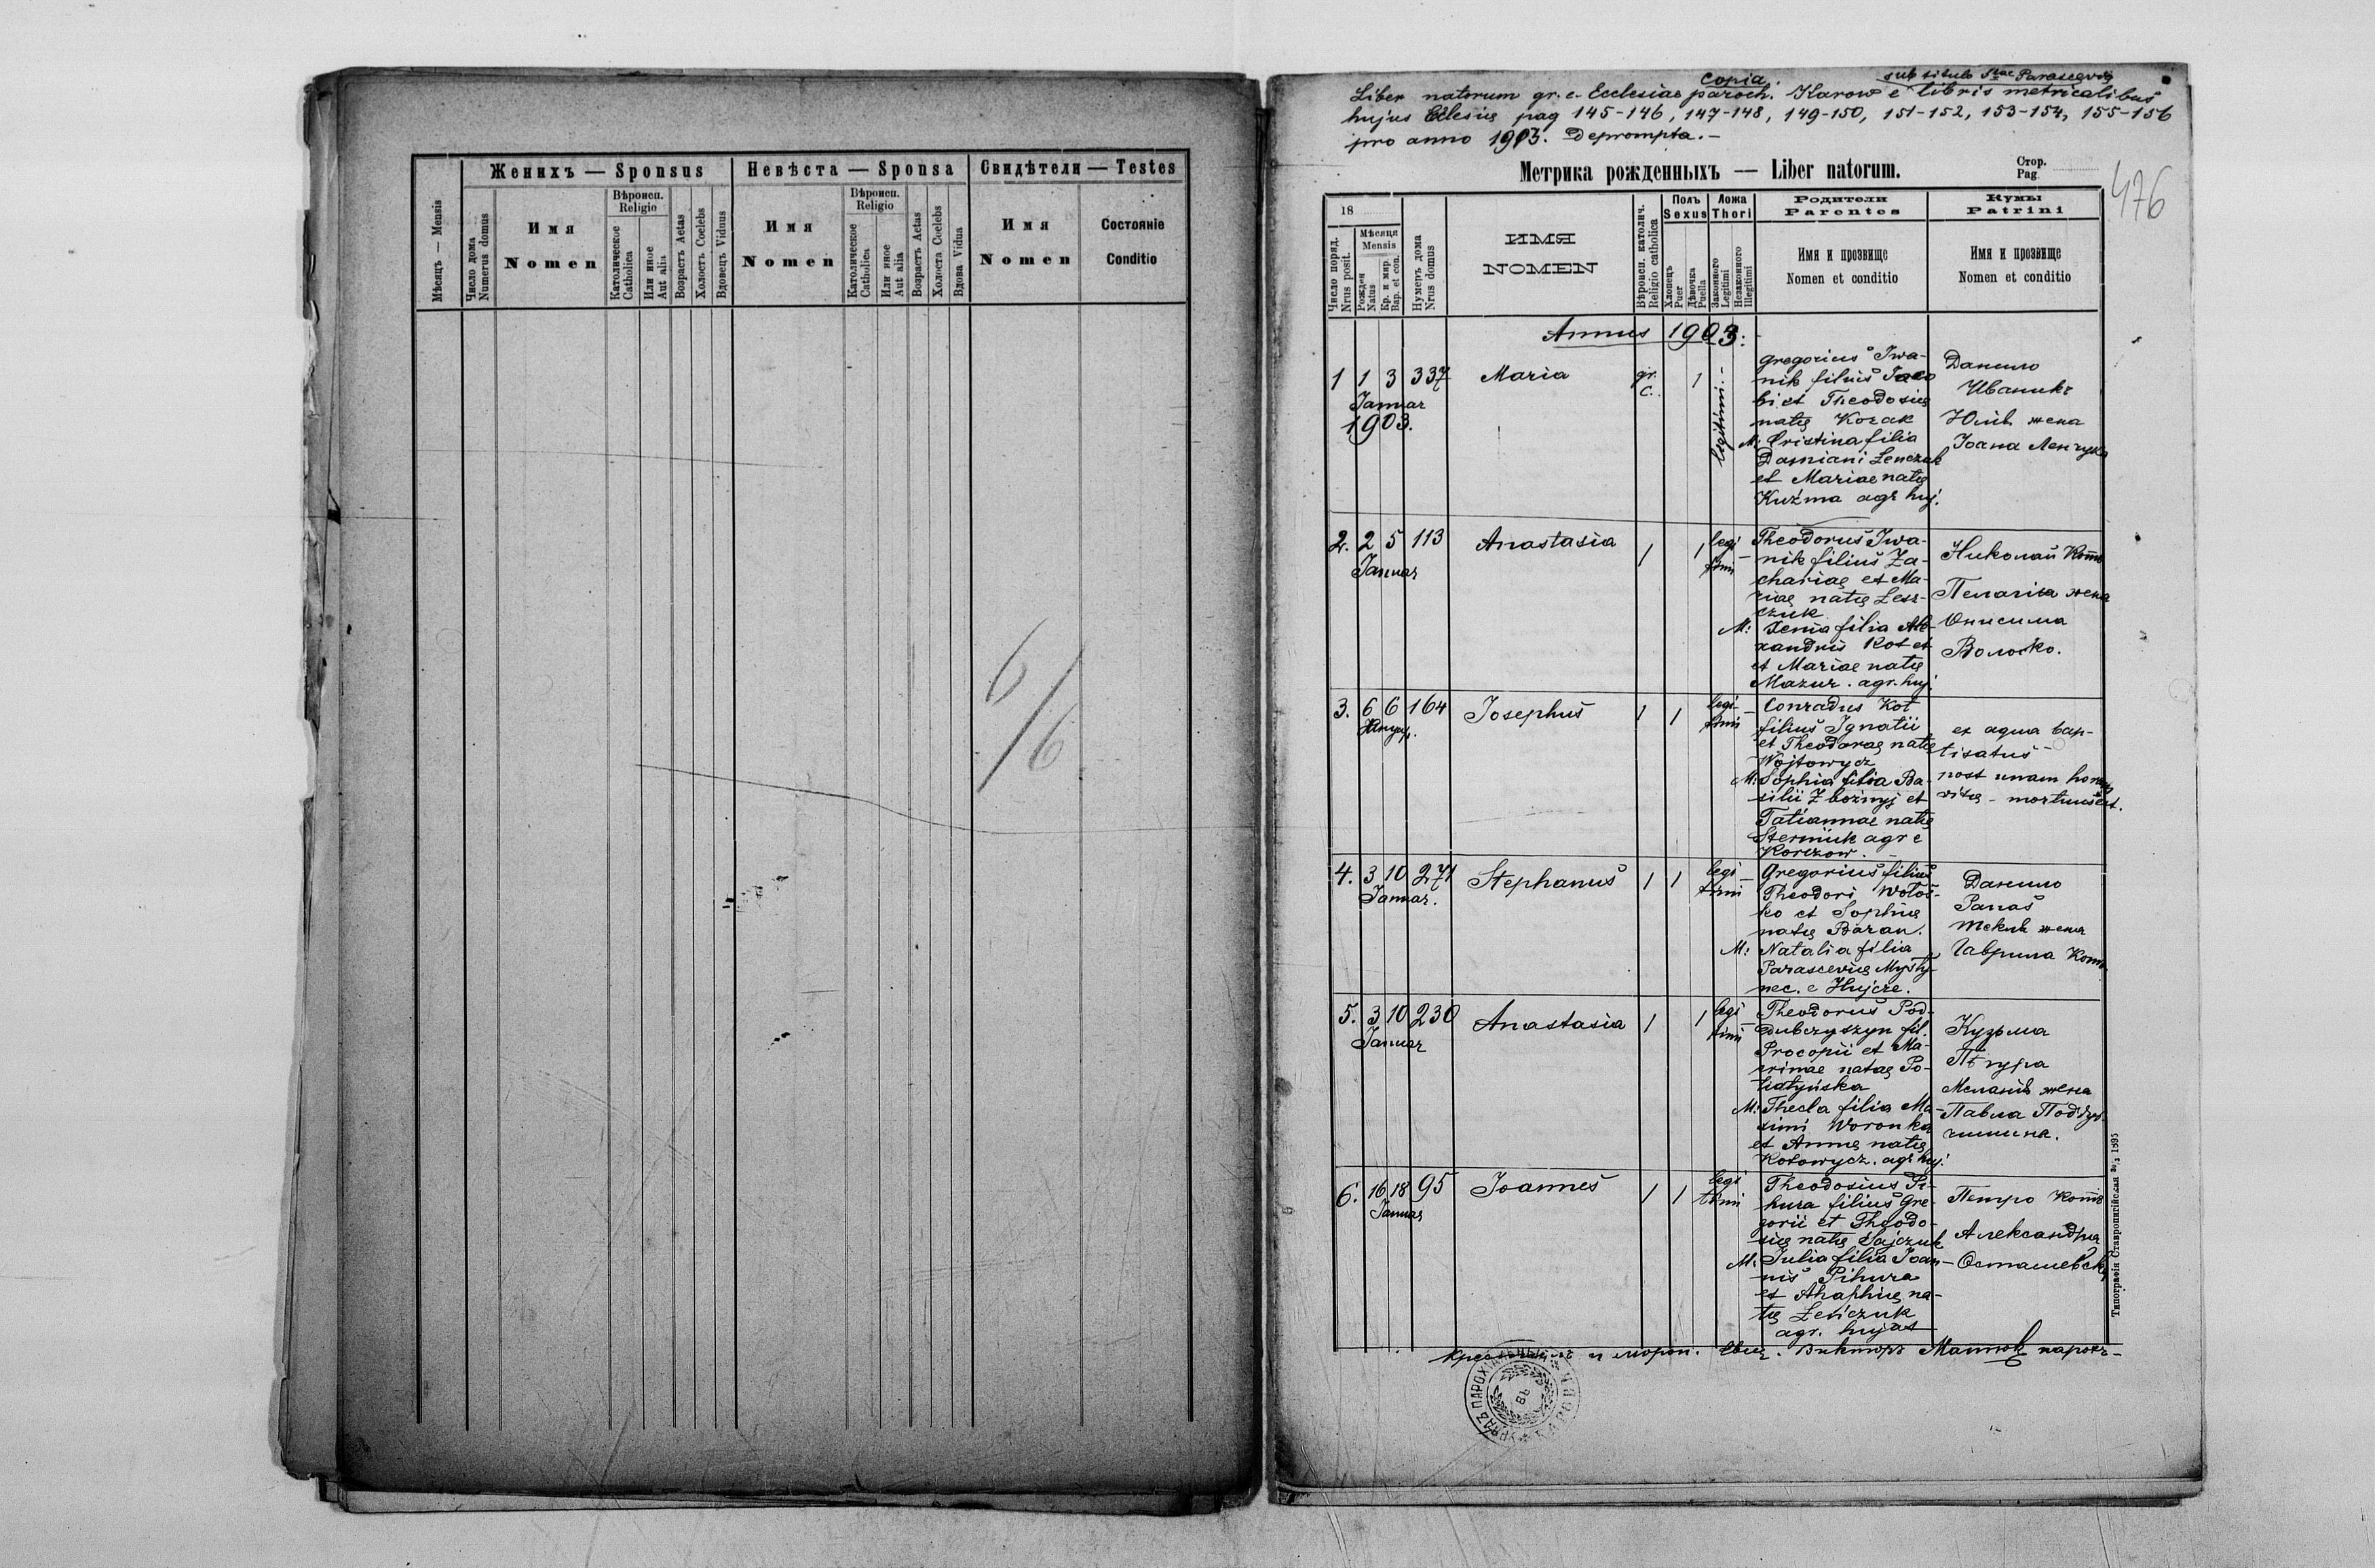 Женихъ — Sponsus
Невѣста — Sponsa
Свидѣтели — Testes
Мѣсяцъ — Mensis
Число дома
Numerus domus
Имя
Nomen
Вѣроисп.
Religio
Католическое
Catholica
Или иное
Aut alia
Возрастъ Aetas
Холостъ Coelebs
Вдовецъ Viduus
Имя
Nomen
Вѣроисп.
Religio
Католическое
Catholica
Или иное
Aut alia
Возрастъ Aetas
Холоста Coelebs
Вдова Vidua
Имя
Nomen
Состояніе
Conditio
6/6
copia. sub titulo Stae Parascevię
Liber natorum gr. c. Ecclesiae paroch. Karow e libris metricalibus
hujus Ecclesię pag 145-146, 147-148, 149-150, 151-152, 153-154, 155-156
pro anno 1903. Deprompta. —
Метрика рожденныхъ — Liber natorum.
Стор.
Pag.
476
18
Число поряд.
Nrus posit.
Мѣсяця
Mensis
Рожден
Natus
Кр. и мир.
Bap. et con.
Нумеръ дома
Nrus domus
ИМЯ
NOMEN
Вѣроисп. католич.
Religio catholica
Полъ
Sexus
Хлопецъ
Puer
Дѣвочка
Puella
Ложа
Thori
Законного
Legitimi
Незаконного
Illegitimi
Родители
Parentes
Имя и прозвище
Nomen et conditio
Кумы
Patrini
Имя и прозвище
Nomen et conditio
Annus 1903:
1 1 3 337 Maria gr. c. 1 legitimi. —
Januar
1903.
Gregorius Iwa-
nik filius Jaco
bi et Theodosię
natę Kozak
M: Cristina filia
Damiani Lenczuk
et Mariae natę
Kuźma agr huj.
Данило
Иваникъ
Юлія жена
Іоана Ленчука
2. 2 5 113 Anastasia 1 1 legi
timi
Januar
Theodorus Iwa-
nik filius Za-
chariaę et Ma-
riaę natę Lesz-
czuk
M: Xenia filia Ale-
xandris Kot et
et Mariae natę
Mazur. agr. huj.
Николай Котъ
Пелагія жена
Онисима
Волошко.
3. 6 6 164 Josephus 1 1 legi-
timi
Януар.
Conradus Kot
filius Ignatii
et Theodoraę natę
Wojtowycz
M: Sophia filia Ba-
silii Zbożnyj et
Tatiannae natę
Sterniuk agr e
Korczow.
ex aqua bap-
tisatus
post unam horam
vitę - mortuus est.
4. 3 10 271 Stephanus 1 1 legi
timi
Januar.
Gregorius filius
Theodori Wołoś-
ko et Sophię
natę Baran.
M: Natalia filia
Parascevię Mysty-
nec. e Hujcze.
Данило
Panas
Текля жена
Гаврила Кота
5. 3 10 230 Anastasia 1 1 legi
timi
Januar
Theodorus Pod-
dubczyszyn fil.
Procopii et Ma-
ximae nataę Po-
tiatyńska
M: Thecla filia Ma-
ximi Woronka
et Annę natę
Kotowycz. agr huj.
Кузьма
Пѣгура
Меланія жена
Павла Поддуб-
чишина.
6. 16 18 95 Joannes 1 1 legi
timi
Januar
Theodosius Pi-
hura filius Gre-
gorii et Theodo-
się natę Sajczuk
M: Julia filia Joan-
nis Pihura
et Ahaphię na-
tę Leńczuk
agr. hujas
Петро Котъ
Александра
Осташевска
и мѵроп. Свящ. Викторъ парохъ —
Типографія Ставропигійская 1895
УРЯДЪ ПАРОХІАЛЬНЫЙ
ВЪ
КАРОВѢ